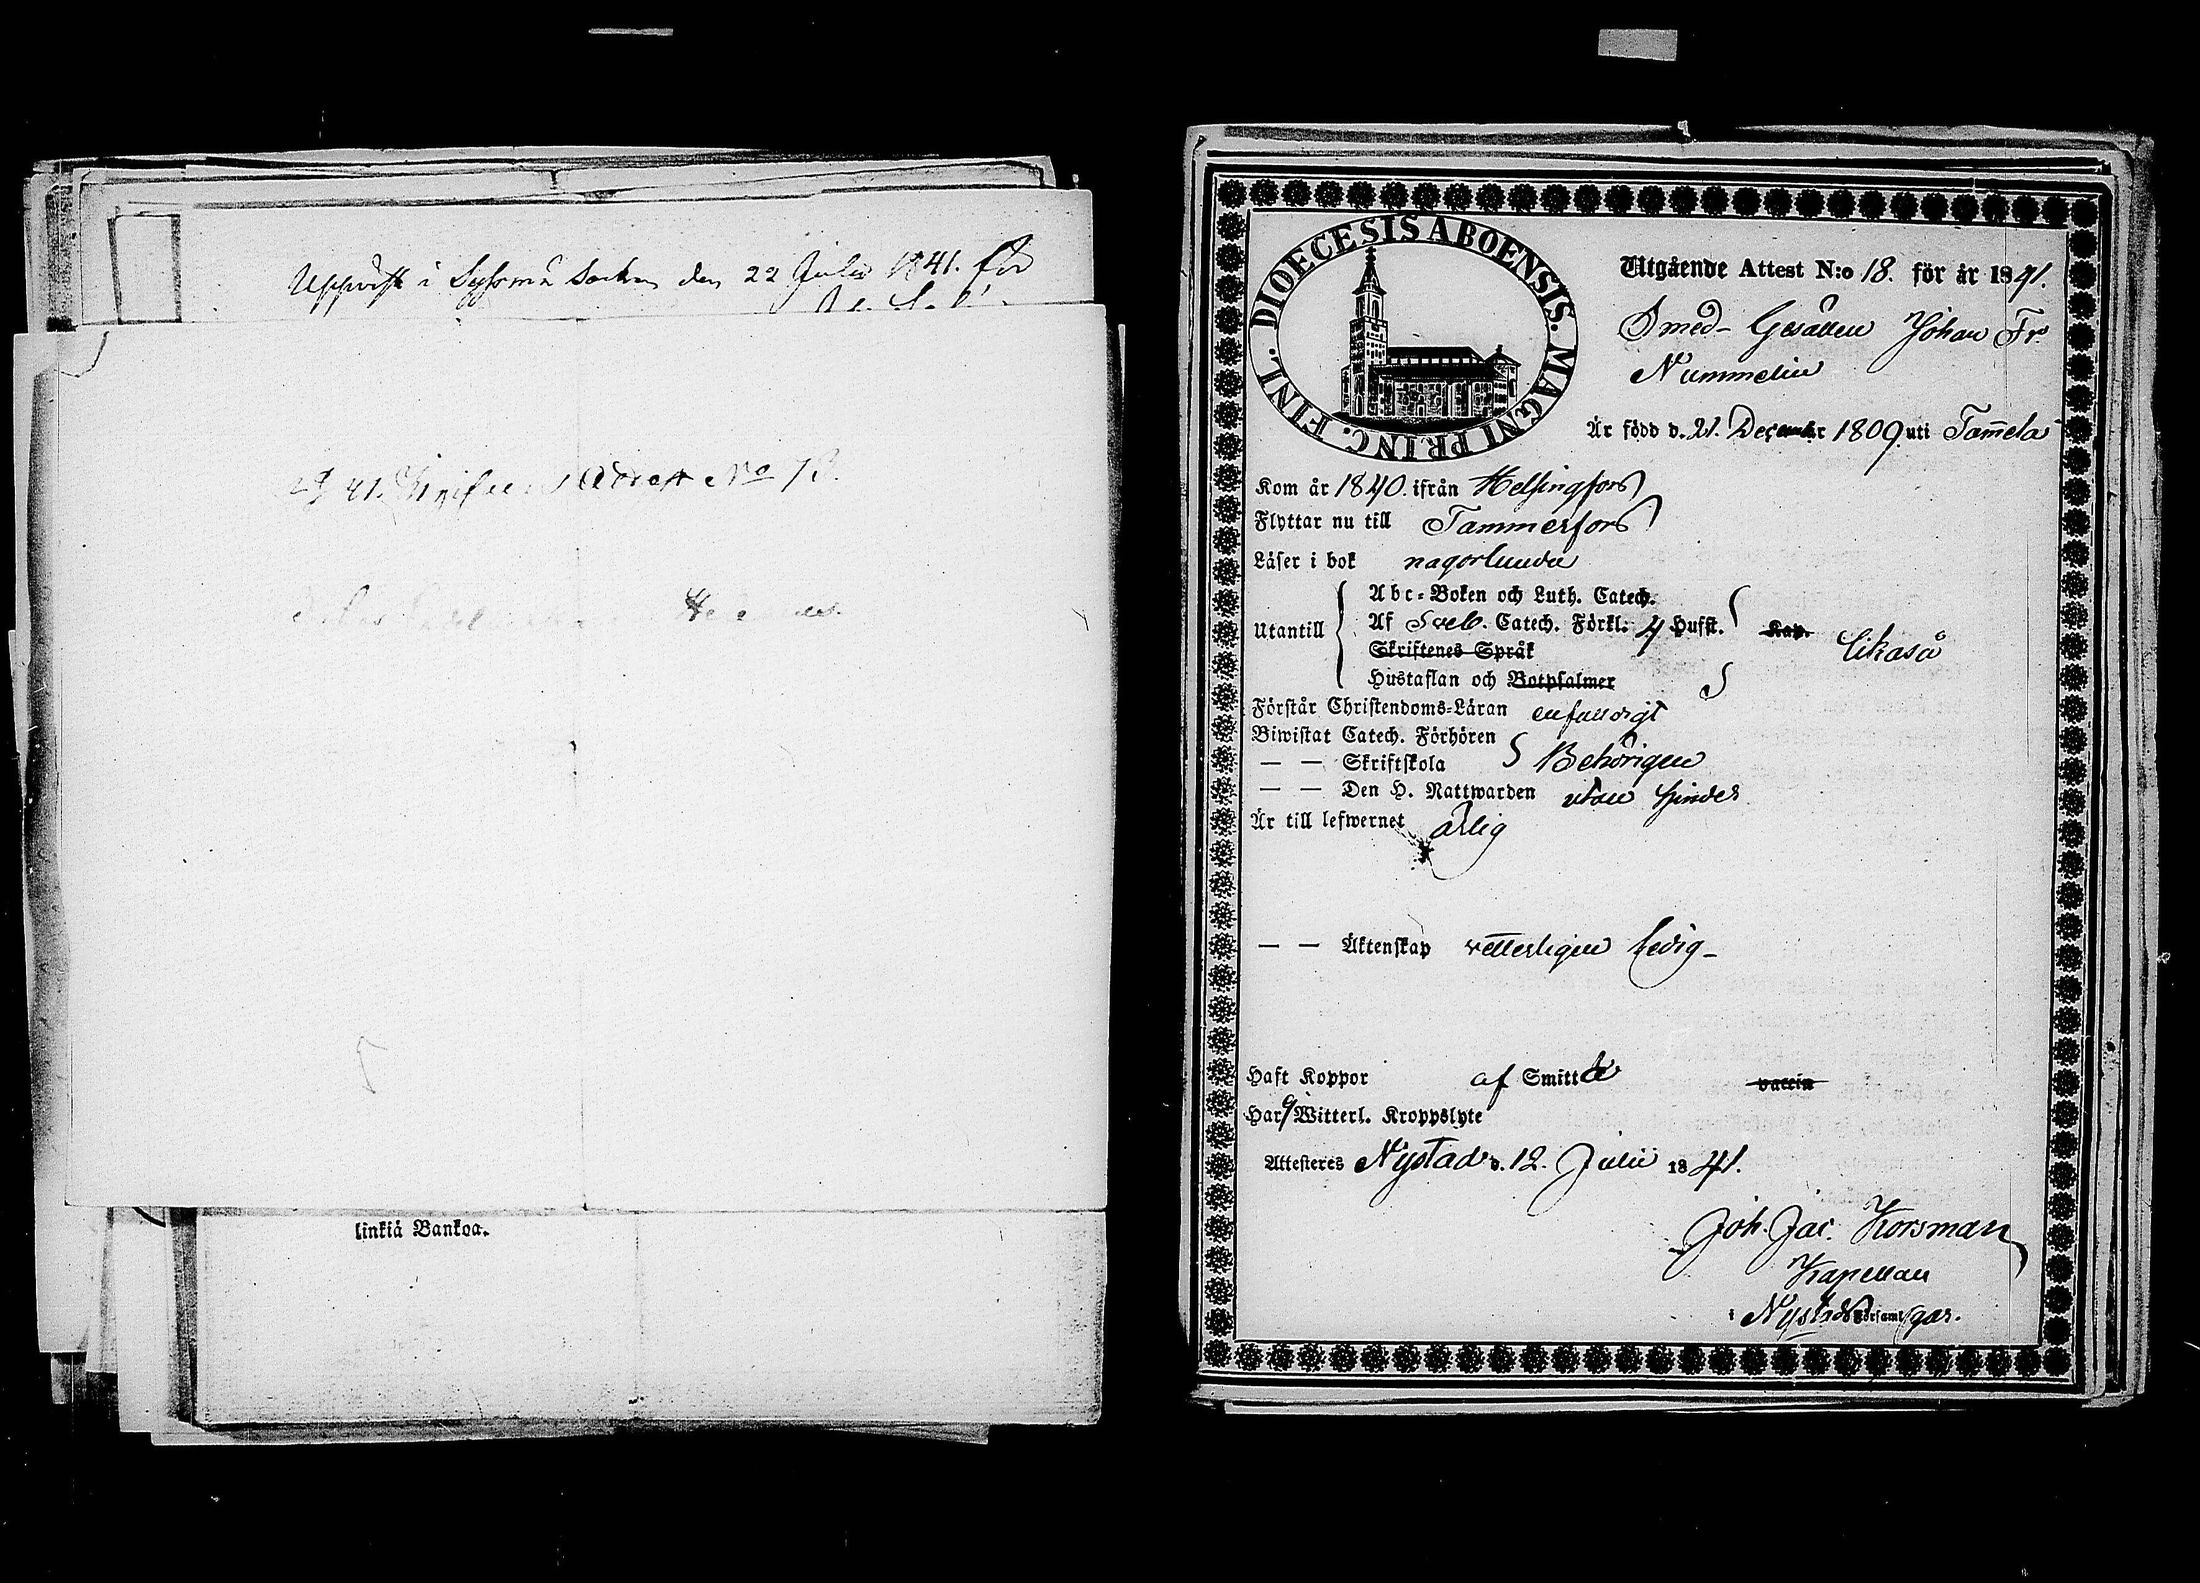 Uppvist i Sysmä Socken den 22 Julii 1841. för
1841. Attest No
linkiä Bankoa.
DIOECESIS ABOENSIS. MAGNI PRINC. FINL.
Utgående Attest N:o 18. för år 1841.
Smed-Gesällen Johan Fr.
Nummelin
Är född d. 21. December 1809. uti Tammela
Kom år 1840. ifrån Helsingfors
Flyttar nu till Tammerfors
Läser i bok någorlunda
Utantill
Abc-Boken och Luth. Catech.
Af Sveb. Catech. Förkl: 4 Hufst. Kap. likaså
Skriftenes Språk
Hustaflan och Botpsalmer
Förstår Christendoms-Läran enfaldigt
Biwistat Catech. Förhören
— — Skriftskola Behörigen
— — Den H. Nattwarden utan hinder
Är till lefwernet ärlig
— — Äktenskap vetterligen ledig-
Haft Koppor af Smitta vaccin
Har Witterl. Kroppslyte
Attesteres Nystad d. 12. Julii 1841.
Joh. Jac. Korsman
Kapellan
i Nystads Församlgar.